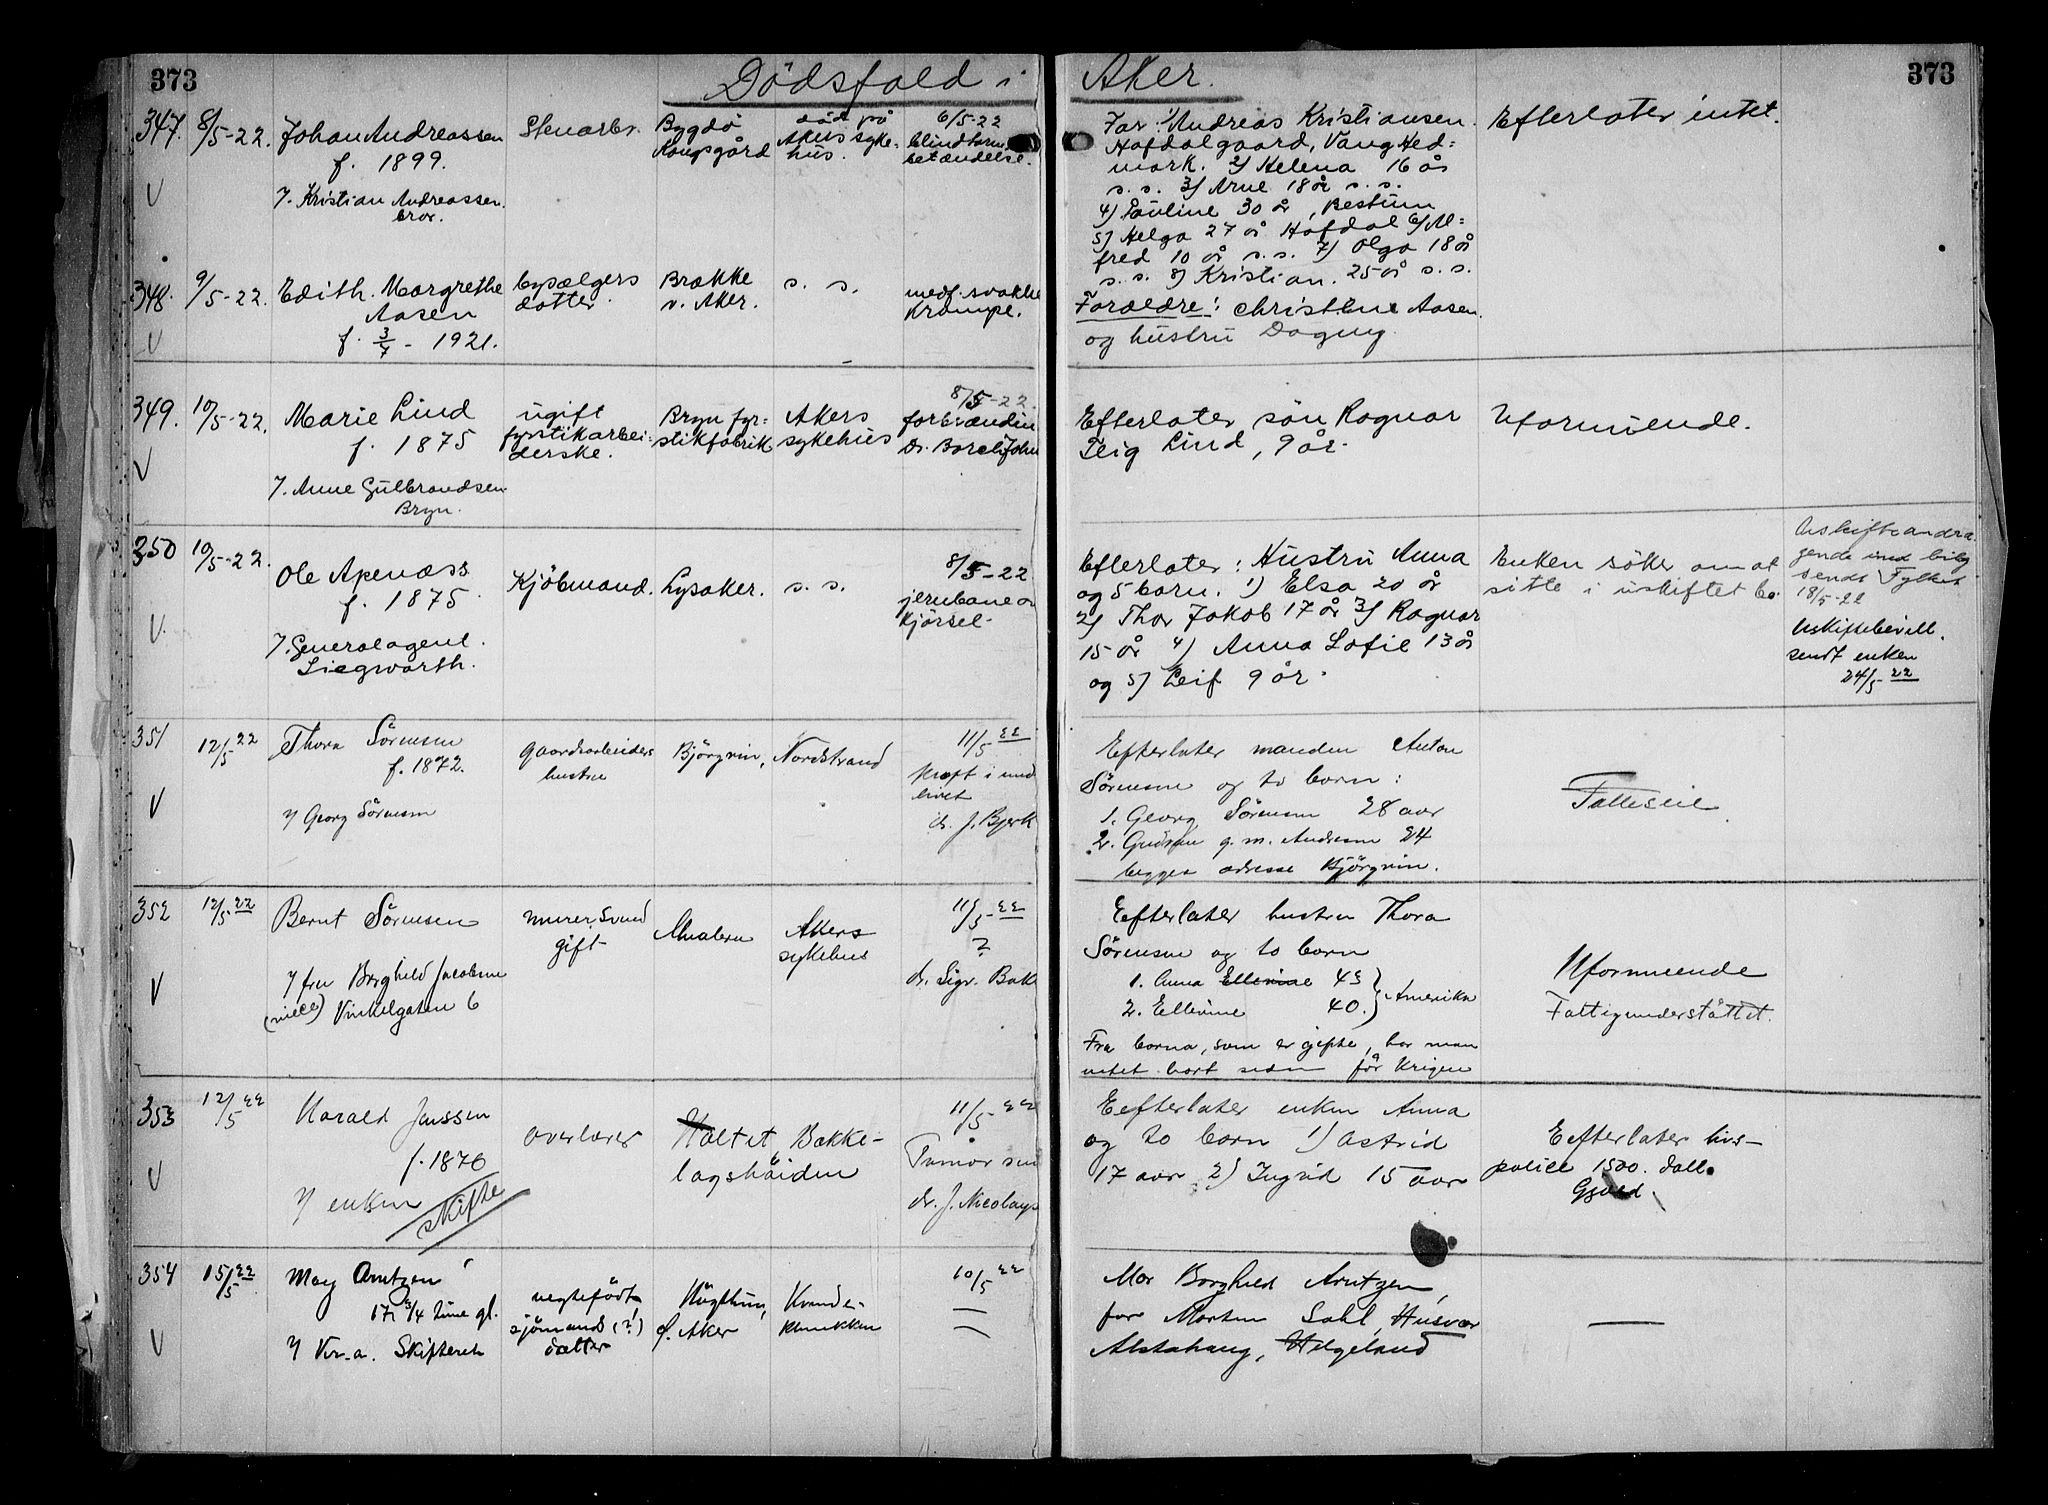 373
Dödsfald i Aker.
373
347. 8/5-22. Johan Andreassen
f. 1899.
7. Kristian Andreassen.
bror.
Stenarb.
Bygdö
Kongsgård
död på
Akers syke-
hus.
6/5-22
blindtarm
betændelse.
Far: 1) Andreas Kristiansen.
Hofdalgaard, Vang Hed=
mark. 2) Helena 16 år
s. s. 3) Arne 18 år s. s.
4) Pauline 30 år, Bestum
5) Helga 27 år Hofdal 6) Al=
fred 10 år s. s. 7) Olga 18 år
s. s. 8) Kristian. 25 år s. s.
Efterlater intet.
348. 9/5-22. Edith. Margrethe
Aasen
f. 3/7 - 1921.
bysælgers
datter
Brække
v. Aker.
s. s.
medf. svakhet
Krampe.
Forældre: Christene Aasen.
og hustru Dagny.
349. 10/5-22. Marie Lind
f. 1875
7. Anne Gulbrandsen
Bryn.
ugift
fyrstikarbei=
derske.
Bryn fyr=
stikfabrik
Akers
sykehus
8/5-22
forbrændin
Dr. Borch John
Efterlater sön Ragnar
Teig Lind, 9 år.
Uformuende.
350 10/5-22. Ole Apenæss
f. 1875
7. Generalagent.
Siegwarth.
Kjöbmand.
Lysaker.
s. s.
8/5-22
jernbane
Kjörsel.
Efterlater: Hustru Anna
og 5 barn. 1) Elsa 20 år
2) Thor Jakob 17 år 3) Ragnar
15 år 4) Anna Sofie 13 år
og 5) Leif 9 år.
Enken söker om at
sitte i uskiftet bo.
Uskifteandra
gende med bilg
sendt Fylket
18/5-22
Uskiftebevill.
sendt enken
24/5 22
351 12/5 22 Thora Sörensen
f. 1872.
7 Georg Sörensen
gaardsarbeiders
hustru
Björgvin, Nordstrand
11/5 22
kræft i und
livet
dr. J. Bjerk
Efterlater manden Anton
Sörensen og to barn:
1. Georg Sörensen 28 aar
2. Gudrun g. m. Andresen 24
begges adresse Björgvin.
352 12/5 22 Bernt Sörensen
7 fru Borghild Jacobsen
(niece) Vinkelgaten 6
murer,
gift
Akers
sykehus
11/5-22
?
dr. Sigv. Bak
Efterlater hustru Thora
Sörensen og to barn
1. Anna Ellevine 43
2. Ellevine 40. Amerika
Fra barna, som er gifte, har man
intet hört siden för krigen
Uformuende
Fattigunderstöttet.
353 12/5 22 Harald Janssen
f. 1876
7 enken
skifte
overlærer
Holtet, Bække-
lagshöiden
11/5-22
Tumor
dr. J. Nicolays
Eefterlater enken Anna
og to barn 1) Astrid
17 aar 2) Ingrid 15 aar
Eefterlater livs-
police 1500. dall.
Gjæld.
354 15/5 22 May Arntzen
17 3/4 time gl.
7 Skifteret
uegtefödt
sjömands (?)
datter
Högthun,
V. Aker
Kvinde-
klinikken
10/5 22
—
—
Mor Borghild Arntzen,
far Morten Dahl, Husvær
Alstahaug, Helgeland
—